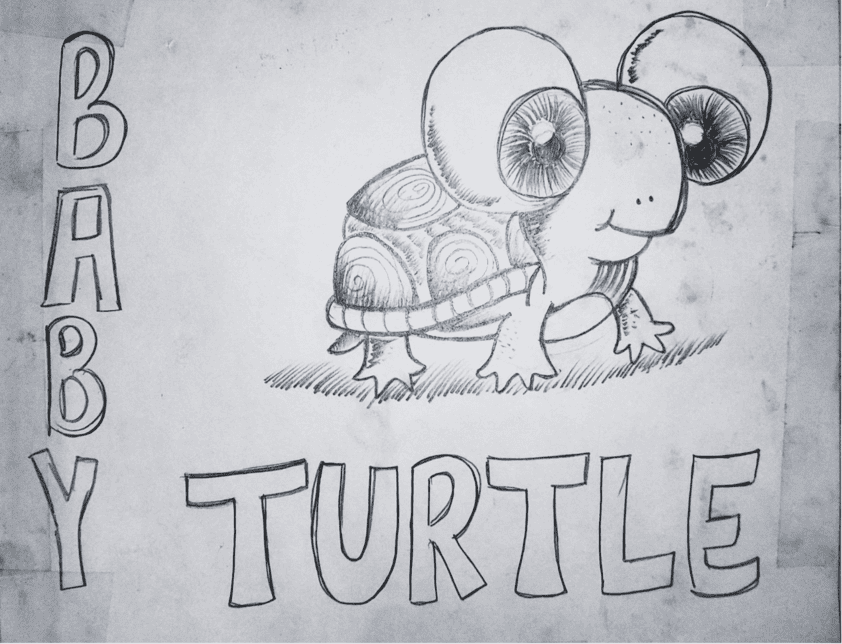 BABY
TURTLE